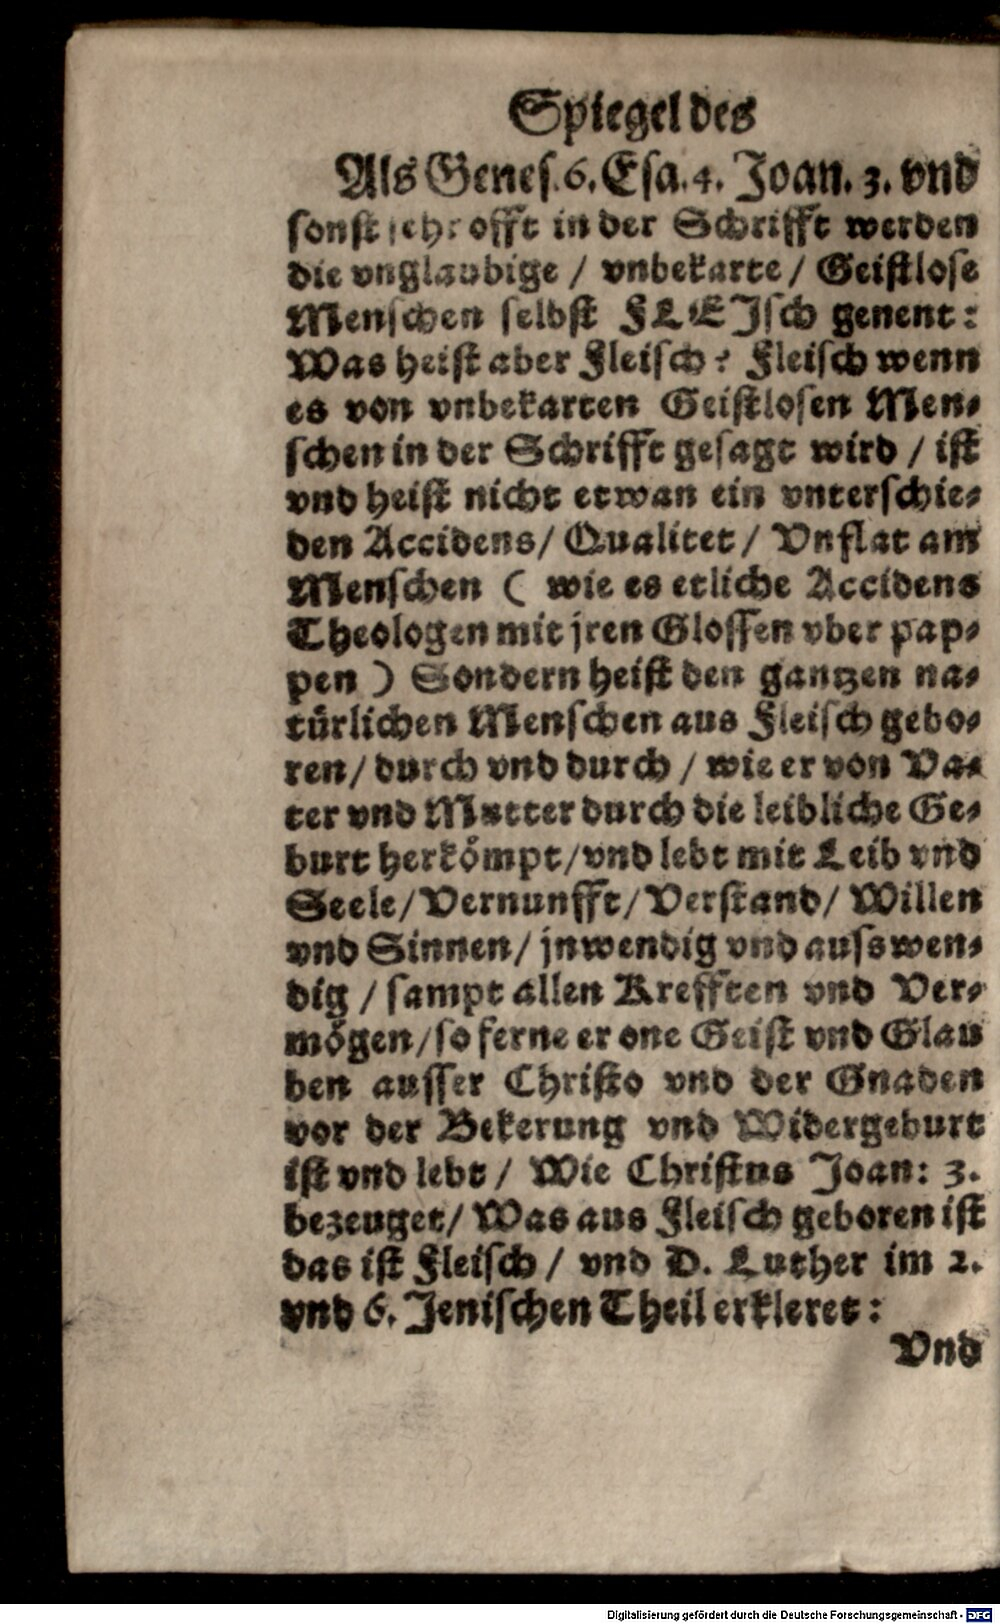 Spiegel des
Als Genes. 6. Esa. 4. Joan. 3. vnd
sonst sehr offt in der Schrifft werden
die vnglaubige / vnbekarte / Geistlose
Menschen selbst FLEJsch genent:
Was heist aber Fleisch? Fleisch wenn
es von vnbekarten Geistlosen Men-
schen in der Schrifft gesagt wird / ist
vnd heist nicht etwan ein vnterschie-
den Accidens / Qualitet / Vnflat am
Menschen ( wie es etliche Accidens
Theologen mit jren Glossen vber pap-
pen ) Sondern heist den gantzen na-
türlichen Menschen aus Fleisch gebo-
ren / durch vnd durch / wie er von Va-
ter vnd Mutter durch die leibliche Ge-
burt herkömpt / vnd lebt mit Leib vnd
Seele / Vernunfft / Verstand / Willen
vnd Sinnen / jnwendig vnd ausswen-
dig / sampt allen Krefften vnd Ver-
mögen / so ferne er one Geist vnd Glau
ben ausser Christo vnd der Gnaden
vor der Bekerung vnd Widergeburt
ist vnd lebt / Wie Christus Joan: 3.
bezeuget / Was aus Fleisch geboren ist
das ist Fleisch / vnd D. Luther im 2.
vnd 6. Jenischen Theil erkleret:
Vnd
Digitalisierung gefördert durch die Deutsche Forschungsgemeinschaft - DFG